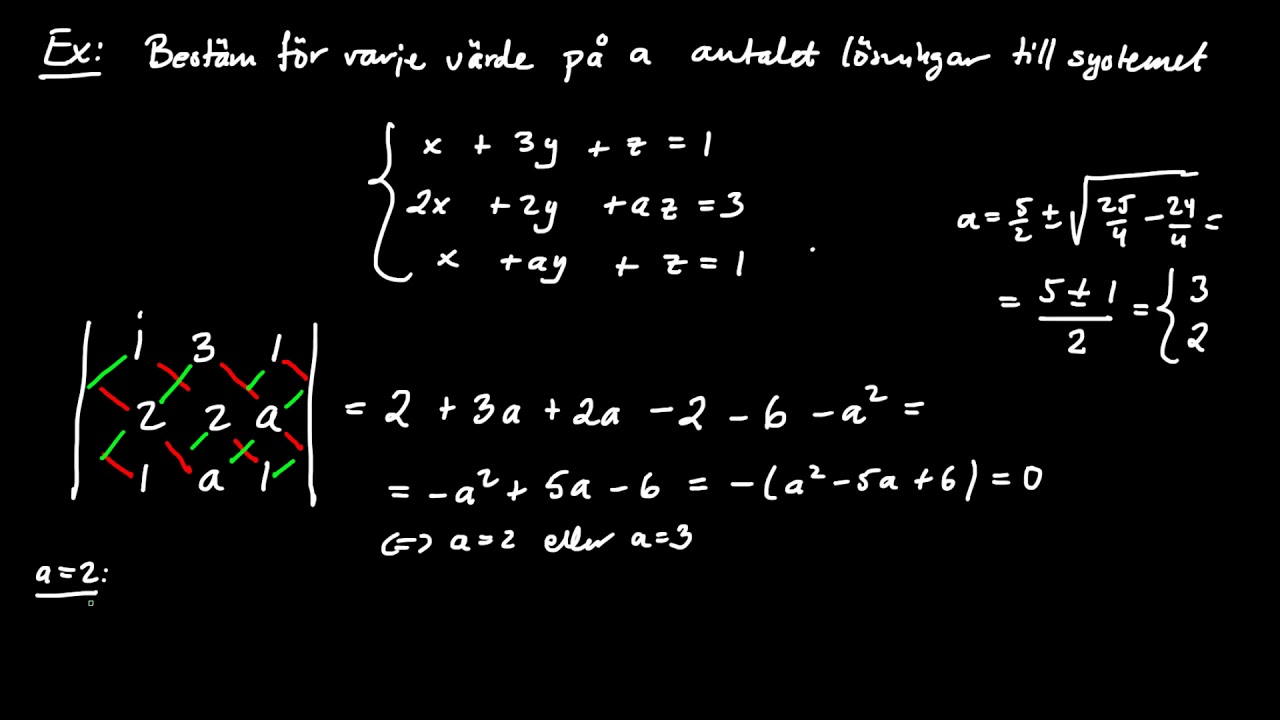 Ex: Bestäm för varje värde på a antalet lösningar till systemet
x + 3y + z = 1
2x + 2y + az = 3
x + ay + z = 1
a = 5/2 ± √(25/4 − 24/4) =
= (5 ± 1)/2 = { 3
2
| 1 3 1 |
| 2 2 a | = 2 + 3a + 2a − 2 − 6 − a² =
| 1 a 1 |
= −a² + 5a − 6 = −(a² − 5a + 6) = 0
⇔ a = 2 eller a = 3
a = 2: